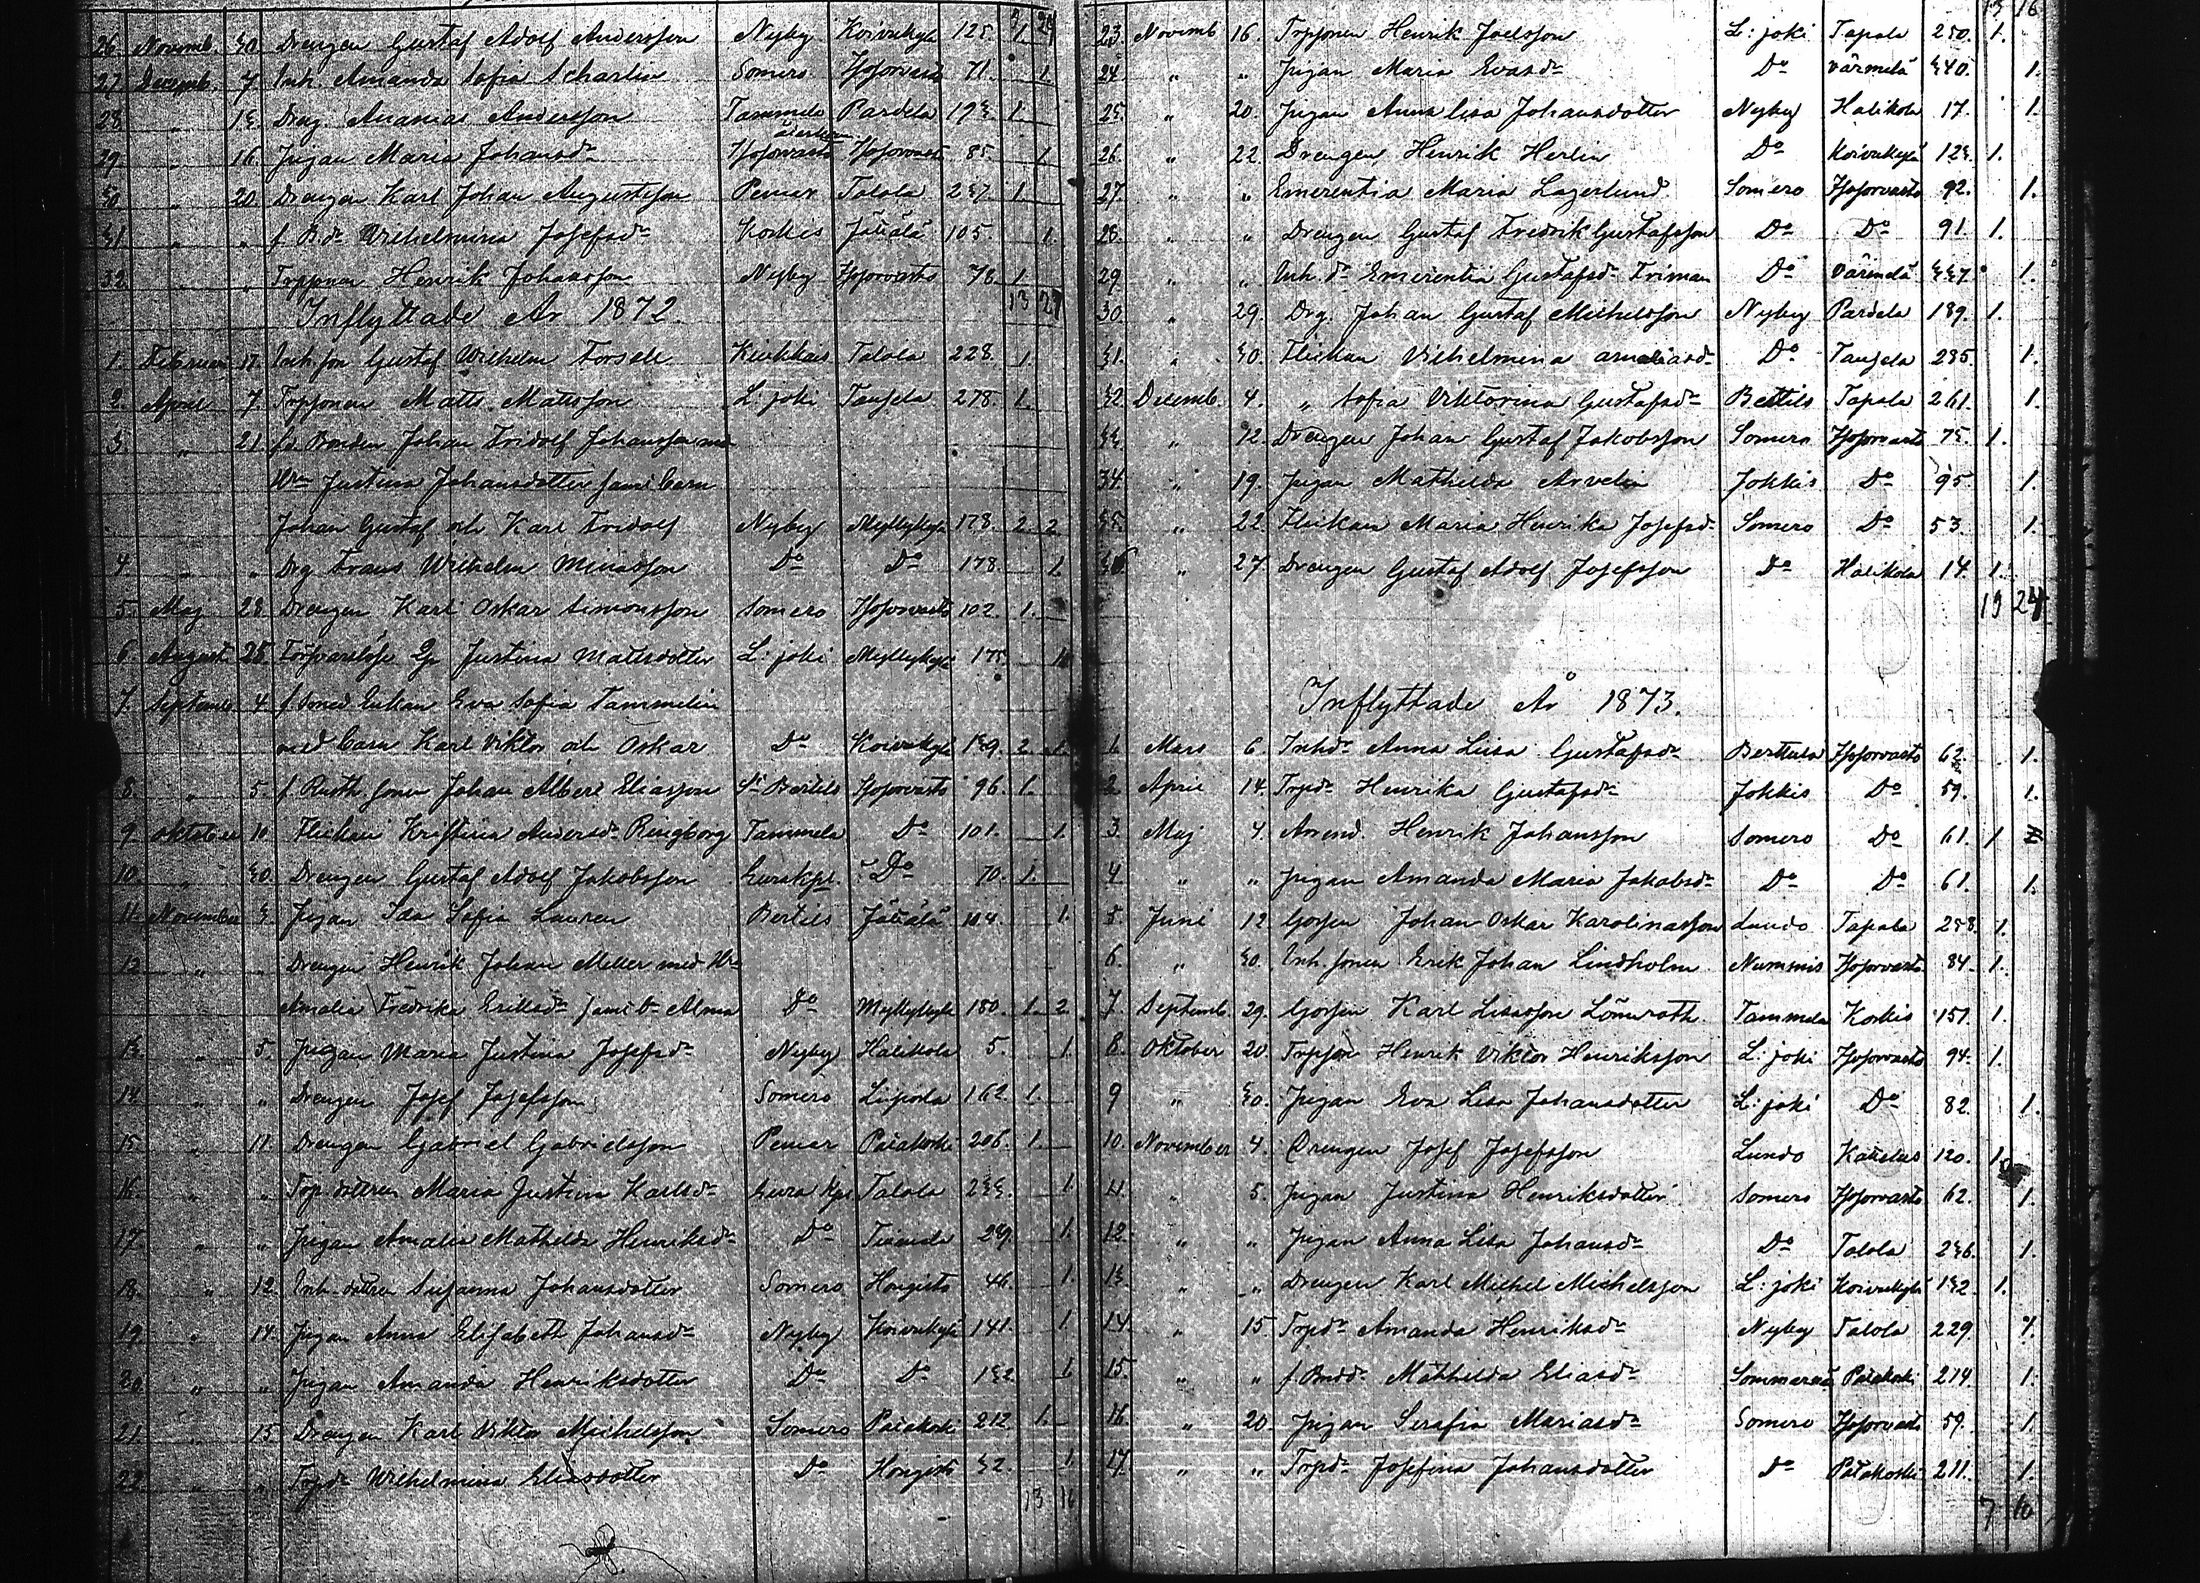 9 24
26 Novemb. 30. Drengen Gustaf Adolf Andersson Nyby Koivukylä 125. 1.
27 Decemb. 7 Inh. Amanda Sofia Scharlin Somero Hoforvasto 71. 1.
28 " 13. Dreng. Ananias Andersson Tammela Pardela 193. 1.
29 " 16 Pigan Maria Johansdr Hoforvasto 85. 1.
30 " 20. Drengen Karl Johan Augustsson Pemar Talola 237. 1.
31 " " f. Bdr Wilhelmina Josefsdr Koskis Jätiälä 105. 1.
32. " Torpsonen Henrik Johansson Nyby Hoforvasto 78. 1.
Inflyttade År 1872. 13 27
1. Februari 17. Inh. son Gustaf Wilhelm Forsell Kiukkais Talola 228. 1.
2. April 7. Torpsonen Matts Mattsson L:joki Tangela 278. 1.
3. " 21. f. Bonden Johan Fridolf Johansson med
Hu Justina Johansdotter samt barn
Johan Gustaf och Karl Fridolf Nyby Myllykylä 178. 2. 2
4 " " Drg Frans Wilhelm Minasson Do Do 178 1.
5. Maj 28. Drengen Karl Oskar Simonsson Somero Hoforvasto 102. 1.
6. Augusti 25. Försvarslösa Justina Mattsdotter L:joki Myllykylä 175.
7. Septemb 4 f. Enkan Eva Sofia Tammelin
med barn Karl Viktor och Oskar Do Koivukylä 139. 2 1.
8. " 5. f. Rusth. sonen Johan Albert Eliasson St Bertils Hoforvasto 96. 1.
9. Oktober 10 Flickan Kristina Andersdr Ringborg Tammela Do 101. 1.
10. " 30. Drengen Gustaf Adolf Jakobsson Eurakpl. Do 70. 1.
11. November 3. Pigan Ida Sofia Lauren Bertils Jätiälä 104. 1.
12 " " Drengen Henrik Johan Meller med Hu
Amalia Fredrika Eriksdr samt dr Alma Do Myllykylä 180. 1. 2
13. " 5. Pigan Maria Justina Josefsdr Nyby Halikola 5. 1.
14. " " Drengen Josef Josefsson Somero Liipola 162. 1.
15. " 11. Drengen Gabriel Gabrielsson Pemar Patakoski 206. 1.
16. " " Torp. dottren Maria Justina Karlsdr Eura kpl Talola 233. 1.
17. " " Pigan Amalia Mathilda Henriksdr Do 249. 1.
18. " 12. Inh. dottren Susanna Johansdotter Somero Hongisto 46. 1.
19. " 14. Pigan Anna Elisabeth Johansdr Nyby Koivukylä 141. 1
20. " " Pigan Amanda Henriksdotter Do Do 132 1
21. " 15. Drengen Karl Viktor Michelsson Somero Patakoski 212. 1.
22. " " Torpdr Wilhelmina Eliasdotter Do Hongisto 32. 1
13 16
13 16
23. Novemb 16. Torpsonen Henrik Joelsson L:joki Tapala 250. 1.
24. " " Pigan Maria Evasdr Do Värmelä 340. 1.
25. " 20. Pigan Anna Lisa Johansdotter Nyby Halikola 17. 1.
26. " 22. Drengen Henrik Herlin Do Koivukylä 123. 1.
27. " " Emerentia Maria Lagerlund Somero Hoforvasto 92. 1.
28. " " Drengen Gustaf Fredrik Gustafsson Do Do 91. 1.
29. " " Inh. dr Emerentia Gustafsdr Friman Do Värmelä 337. 1.
30. " 29. Drg. Johan Gustaf Michelsson Nyby Pardela 189. 1.
31. " 30. Flickan Vilhelmina Amaliasdr Do Tangela 285. 1.
32. Decemb. 4. " Sofia Viktorina Gustafsdr Bertils Tapala 261. 1.
33. " 12. Drengen Johan Gustaf Jakobsson Somero Hoforvasto 73. 1.
34. " 19. Pigan Mathilda Arvelin Jokkis Do 95 1.
35. " 22. Flickan Maria Henrika Josefsdr Somero Do 53. 1.
36 " 27. Drengen Gustaf Adolf Josefsson Do Halikola 14. 1.
19 24
Inflyttade År 1873.
1. Mars 6. Inhdr Anna Liisa Gustafsdr Berttula Hoforvasto 62. 1.
2. April 14. Torpdr Henrika Gustafsdr Jokkis Do 59. 1.
3. Maj 4. Arend. Henrik Johansson Somero Do 61. 1
4 " " Pigan Amanda Maria Jakobsdr Do Do 61. 1.
5. Juni 12 Gossen Johan Oskar Karolinasson Lundo Tapala 258. 1.
6. " 30. Inh. sonen Erik Johan Lindholm Nummis Hoforvasto 84. 1.
7. Septemb. 29. Gossen Karl Lisasson Lönnroth Tammela Koskis 151. 1.
8. Oktober 20. Torpson Henrik Viktor Henriksson L:joki Hoforvasto 94. 1.
9 " 30. Pigan Eva Lisa Johansdotter L:joki Do 82. 1.
10. November 4. Drengen Josef Josefsson Lundo 120. 1.
11. " 5. Pigan Justina Henriksdotter Somero Hoforvasto 62. 1.
12. " " Pigan Anna Lisa Johansdr Do Talola 236. 1.
13. " " Drengen Karl Michel Michelsson L:joki Koivukylä 132 1.
14. " 15 Torpdr Amanda Henriksdr Nyby Talola 229 1.
15. " " f. Bondr Mathilda Eliasdr Patakoski 214. 1.
16. " 20. Pigan Serafia Mariasdr Somero Hoforvasto 59. 1.
17. " " Torpdr Josefina Johansdotter Do Patakoski 211. 1.
7 10